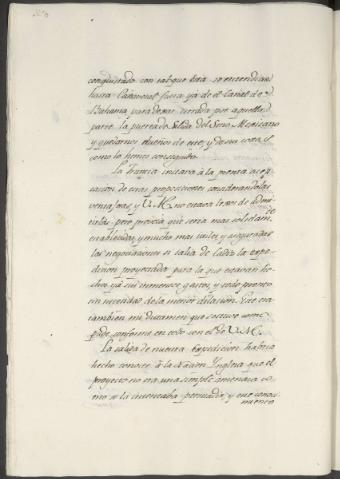 conquistado con tal que esta se extendiese
hasta Cañaveral fuera ya de el Canal de
Bahama para dejar cerrada por aquella
parte la puerta de Salida del Seno Mexicano
y quedarnos dueños de este y de su costa
como lo hemos conseguido.
La Francia instava à la pronta acep-
tacion de otras proposiciones considerandolas
ventajosas, y V.M. no estava lejos de admi-
tirlas; pero preveía que seria mas solidam.te
establecidas, y mucho mas utiles y aseguradas
las negociaciones si salia de Cadiz la expe-
dicion proyectada para la que estavan he-
chos ya sus inmensos gastos y todo pronto
sin necesidad de la menor dilacion. Este era
tambien mi dictamen que sostuve como
pude, conforme en todo con el de V.M.
La salida de nuestra Expedicion habria
hecho conocer à la Nacion Ynglesa que el
proyecto no era una simple amenaza co-
mo se la intentaba persuadir, y este conoci-
miento